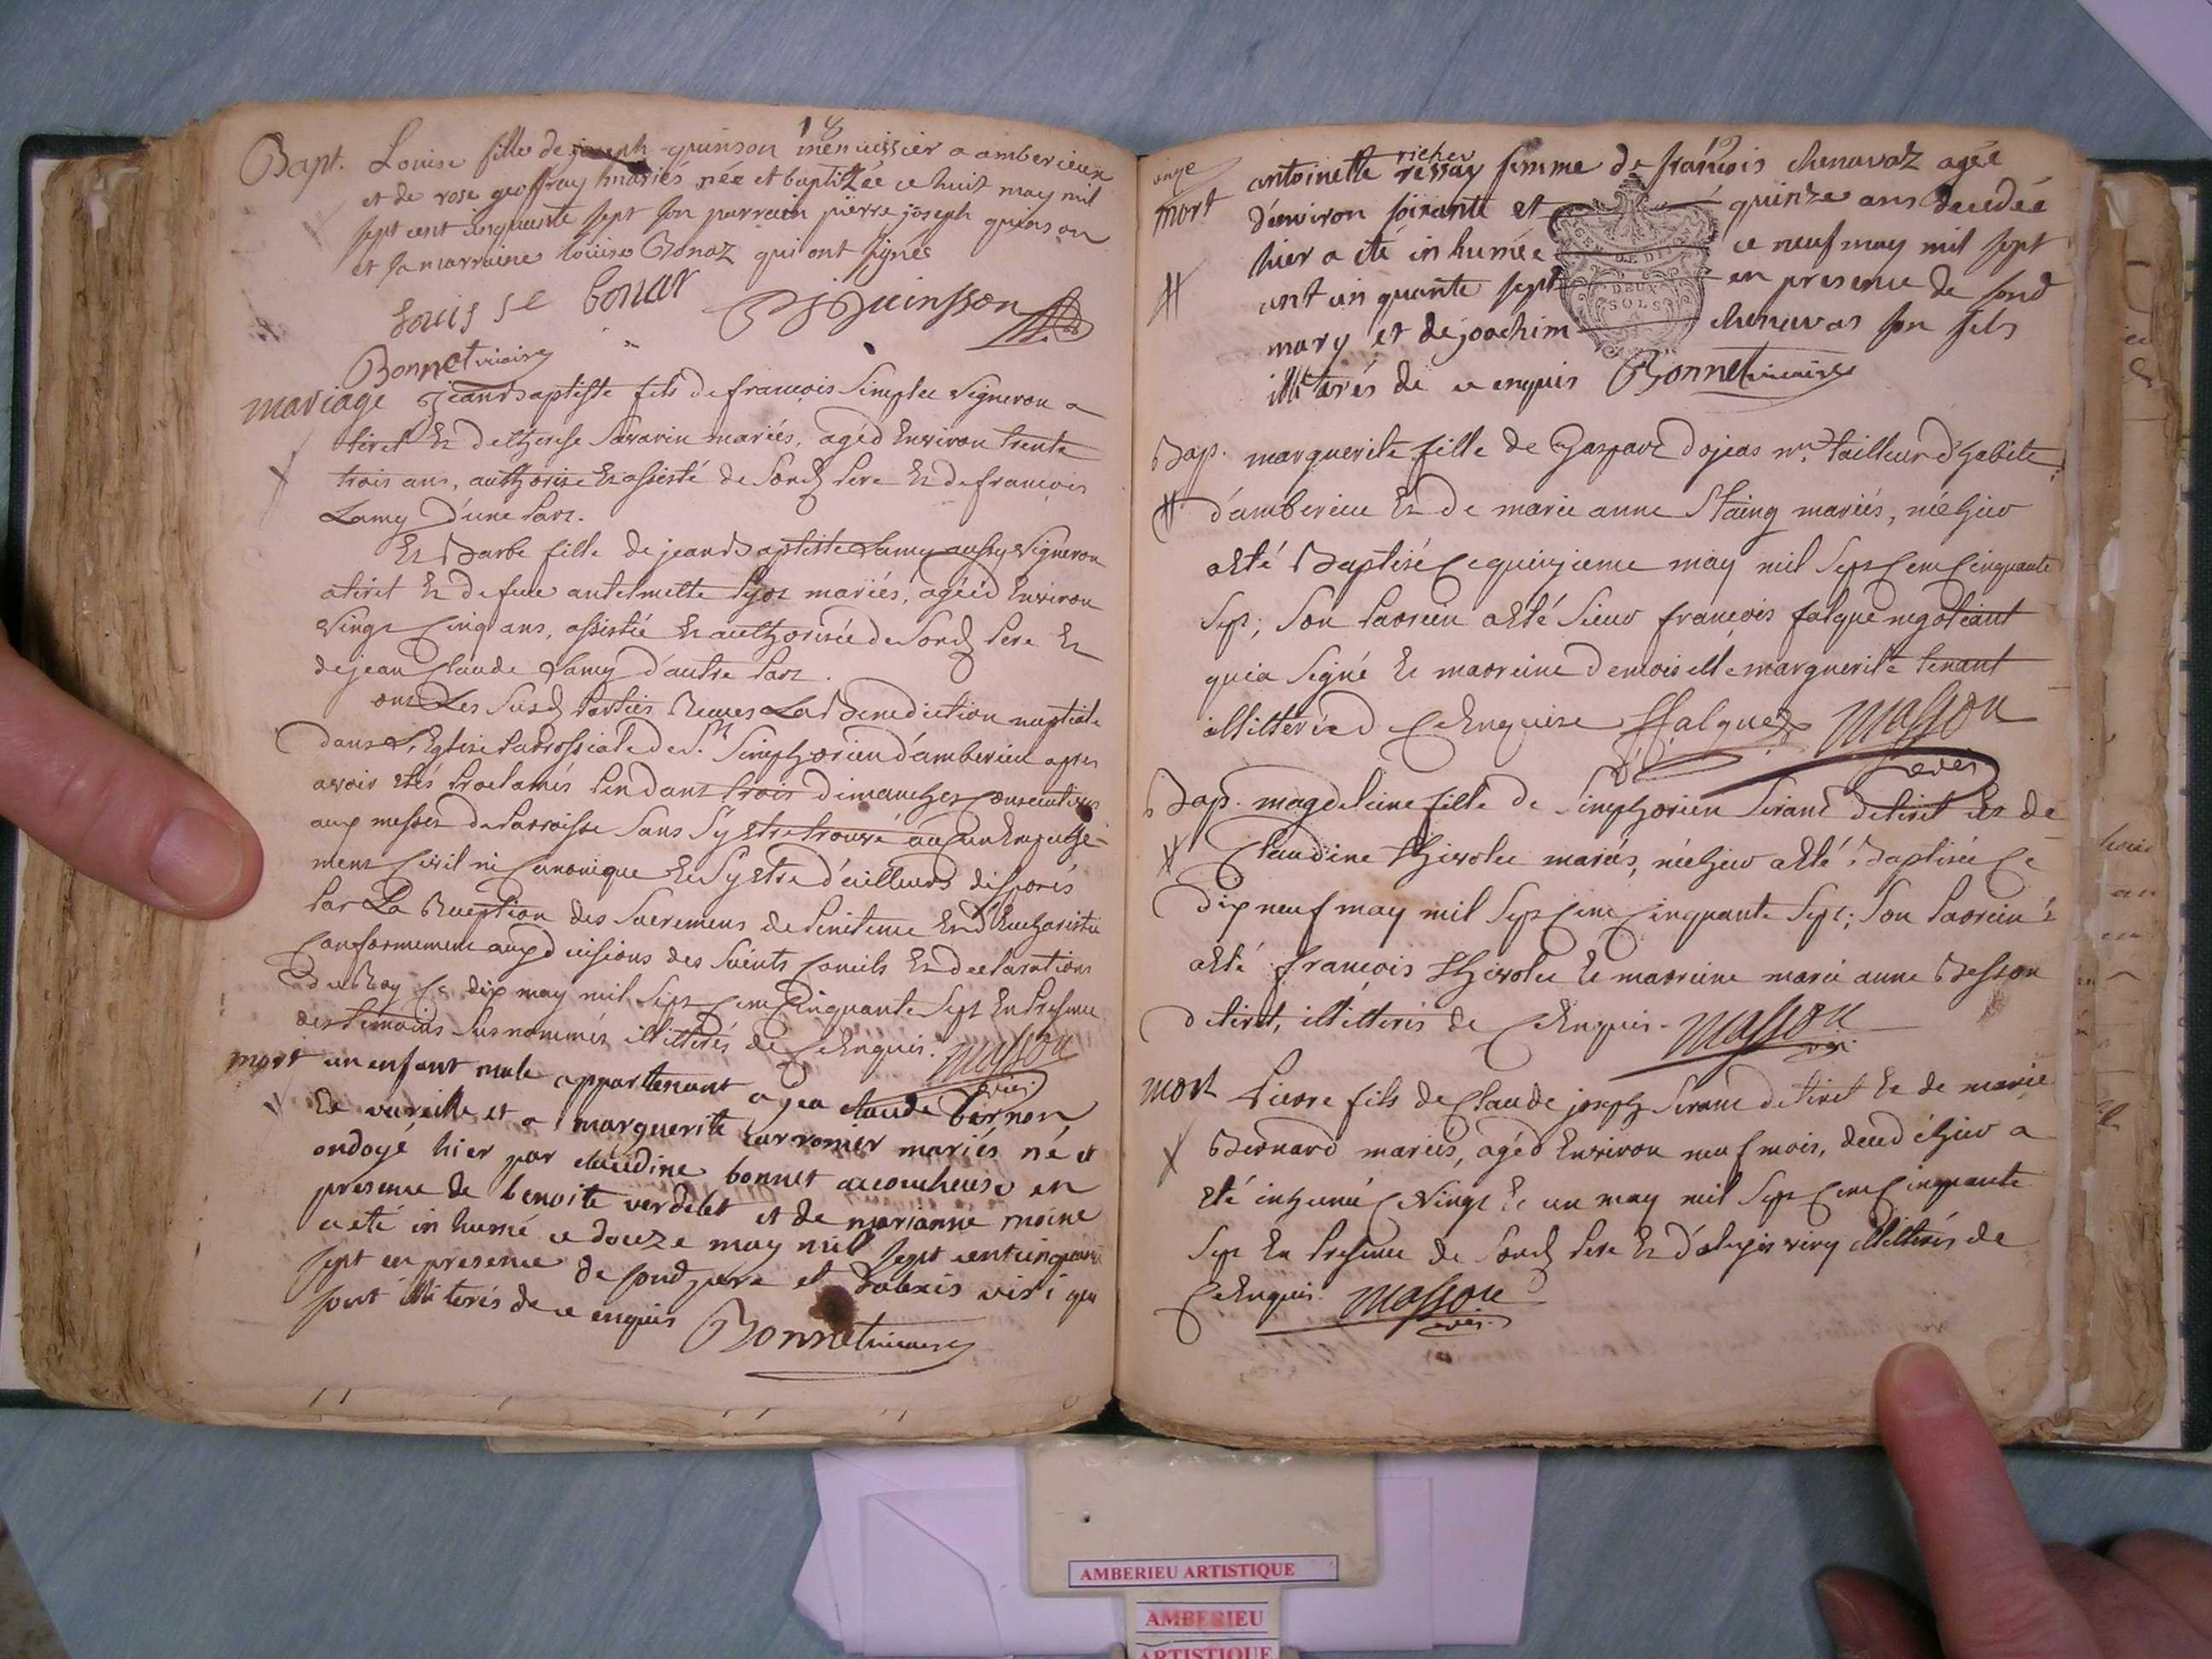 18
Bapt. Louise fille de joseph quinson menuissier a amberieux
et de rose geoffray mariés née et baptizée ce huit may mil
sept cent cinquante sept son parrain pierre joseph quinson
et sa marraine louise Bonaz qui ont signés
Louise Bonar PJ Quinsson
Bonnet vicaire
mariage Jean Baptiste fils de francois Simplee vigneron a
tiret Et de therese Savarin mariés, agé d'Environ trente
trois ans, authorisé Et assisté de Sond Pere Et de francois
Lamy D'une Part.
Et Barbe fille de jean Baptiste Lamy aussy vigneron
a tiret Et de feue anthelmette mariés, agée d'Environ
vingt Cinq ans, assistée Et authorisée de Sond Pere Et
de jean Claude Lamy d'autre Part.
ont Les Susd Parties Recues La Benediction nuptiale
dans L'Eglise Parrossiale de St. Simphorien d'amberieu apres
avoir Etés Proclamés Pendant trois dimanches Consecutives
aux messes de Parroisse Sans S'y Etre trouvé aucun Empesche-
ment Civil ni Canonique Et S'y Etre d'ailleurs disposés
Par La Reception des Sacremens de Penitence Et d'Eucharistie
Conformement aux decisions des Saints Conciles Et declarations
du Roy Ce dix may mil Sept Cent Cinquante Sept En Presence
des temoins Susnommés illitterés de Ce Enquis. Masson
curé.
mort un enfant male appartenant a jea claude bernon
de vareille et a marguerite carronier mariés né et
ondoyé hier par claudine bonnet accoucheuse en
presence de benoite verdelet et de marianne moine
a été inhumé ce douze may mil sept cent cinquante
sept en presence de sond pere et d'alexis viri qui
sont illiterés de ce enquis Bonnet vicaire
19
onze
richer
mort antoinette ressay femme de francois chenavaz agée
d'environ soixante et quinze ans decedée
hier a été inhumée ce neuf may mil sept
cent cinquante sept en presence de sond
mary et de joachim chenavas son fils
illiterés de ce enquis Bonnet vicaire
GEN. DE DIJ
DEUX
SOLS
Bap. marguerite fille de Gaspard dojeas me. tailleur d'habits
d'amberieu Et De marie anne Staing mariés, née hier
a Eté Baptisée Ce quinzieme may mil Sept Cent Cinquante
Sept; Son Parrein a Eté Sieur francois falque negotiant
qui a Signé Et marreine Demoiselle marguerite tenant
illitterée de Ce Enquise Ffalque Masson
curé
Bap. magdeleine fille de Simphorien Sirand de tiret Et de
Claudine Thivolee mariés, née hier a Eté Baptisée Ce
dix neuf may mil Sept Cent Cinquante Sept; Son Parrein
a Eté francois Thivolee Et marreine marie anne Besson
de tiret, illitterés de Ce Enquis. Masson
curé.
mort Pierre fils de Claude joseph Sirand de tiret Et de marie
Bernard mariés, agé d'Environ neuf mois, decedé hier a
Eté inhumé Ce Vingt Et un may mil Sept Cent Cinquante
Sept En Presence de Sond Pere Et d'alexis viry illitterés de
Ce Enquis. Masson
curé.
AMBERIEU ARTISTIQUE
AMBERIEU
ARTISTIQUE